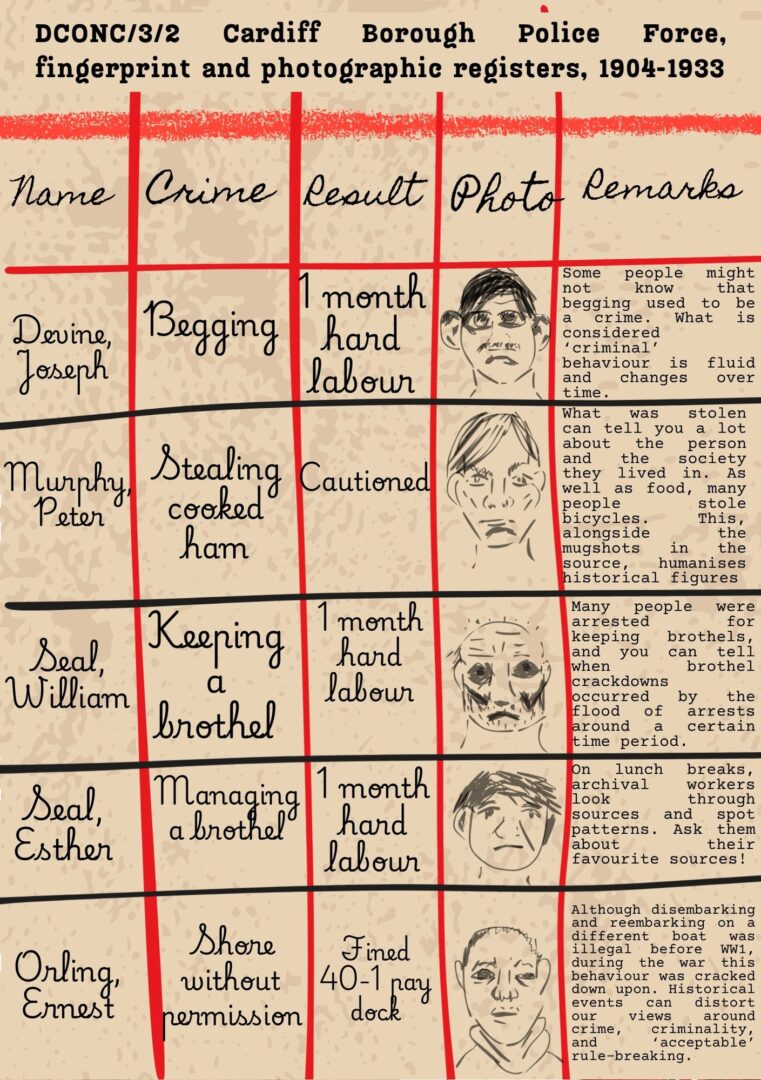 DCONC/3/2 Cardiff Borough Police Force,
fingerprint and photographic registers, 1904-1933
Name
Crime
Result
Photo
Remarks
Devine,
Joseph
Begging
1 month
hard
labour
Some people might
not know that
begging used to be
a crime. What is
considered
‘criminal’
behaviour is fluid
and changes over
time.
Murphy,
Peter
Stealing
cooked
ham
Cautioned
What was stolen
can tell you a lot
about the person
and the society
they lived in. As
well as food, many
people stole
bicycles. This,
alongside the
mugshots in the
source, humanises
historical figures
Seal,
William
Keeping
a
brothel
1 month
hard
labour
Many people were
arrested for
keeping brothels,
and you can tell
when brothel
crackdowns
occurred by the
flood of arrests
around a certain
time period.
Seal,
Esther
Managing
a brothel
1 month
hard
labour
On lunch breaks,
archival workers
look through
sources and spot
patterns. Ask them
about their
favourite sources!
Orling,
Ernest
Shore
without
permission
Fined
40-1 pay
dock
Although disembarking
and reembarking on a
different boat was
illegal before WW1,
during the war this
behaviour was cracked
down upon. Historical
events can distort
our views around
crime, criminality,
and ‘acceptable’
rule-breaking.